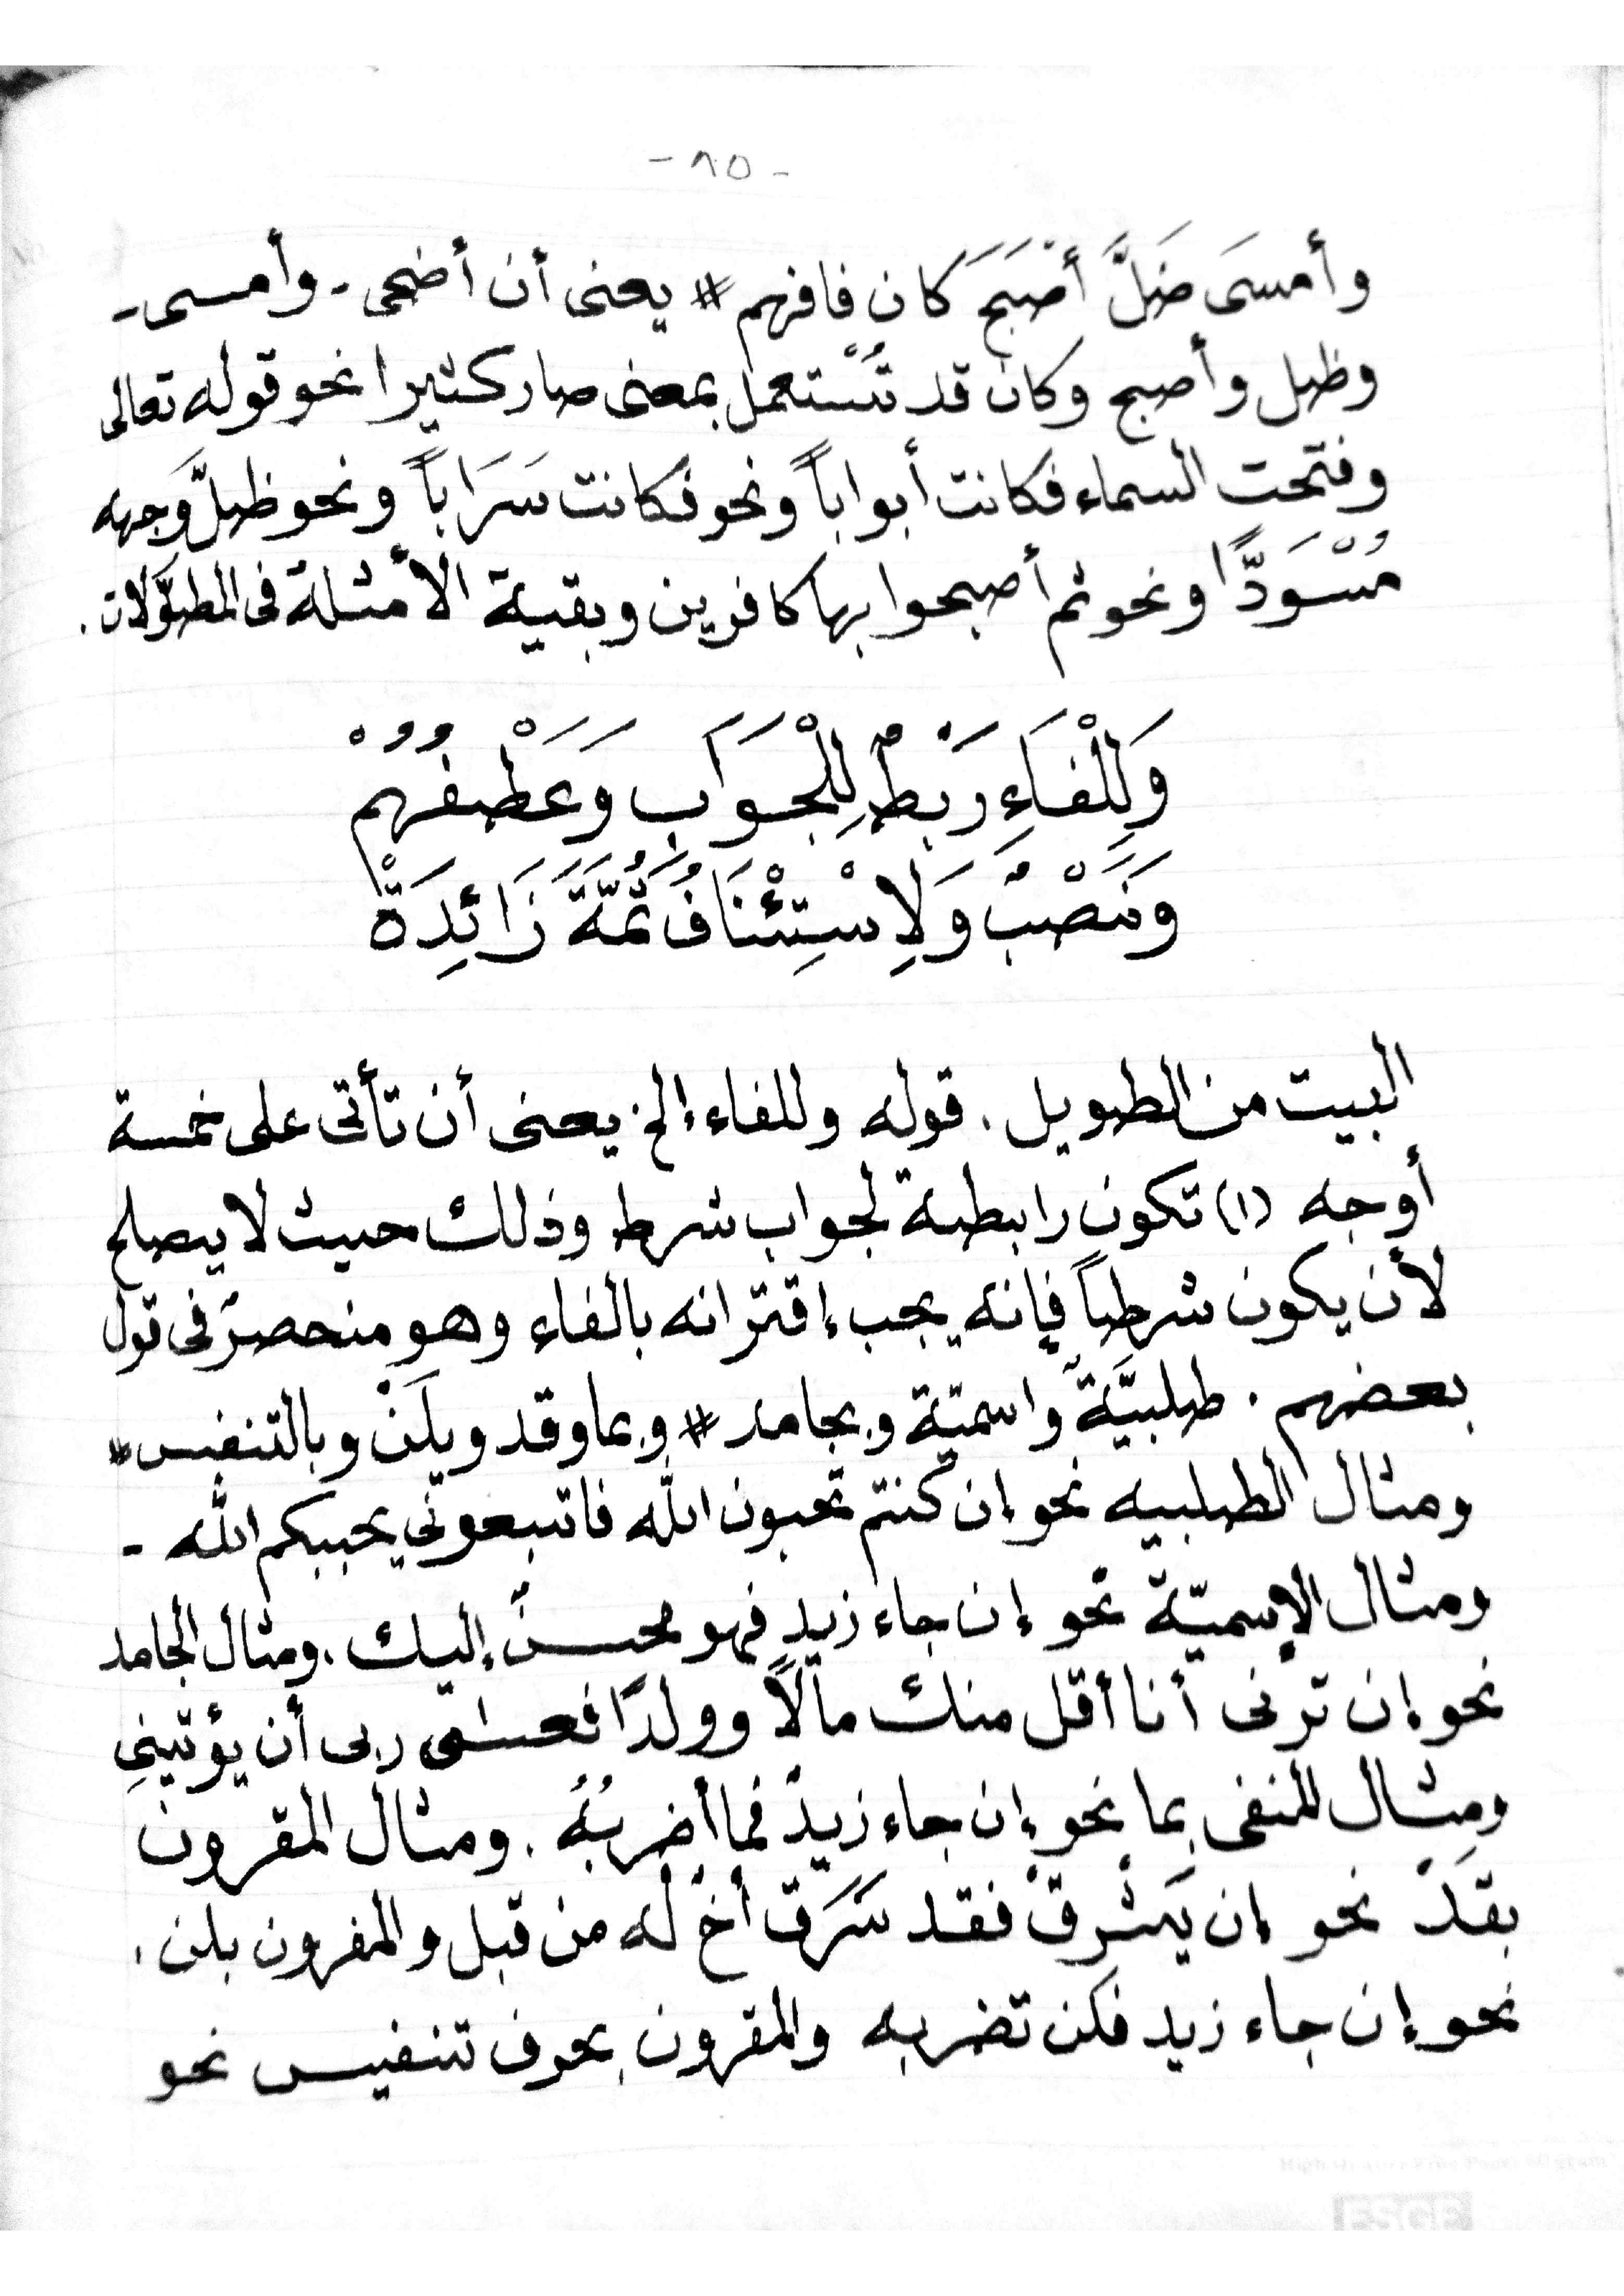 - ٨٥ -
وأمسَى ضَلَّ أَصْبَحَ كان فافهم # يعنى أن أضحى - وأمسى -
وظل وأصبح وكان قد تُسْتعمل بمعنى صار كثيرا نحو قوله تعالى
وفتحت السماء فكانت أبواباً ونحو فكانت سَرَاباً ونحو ظلَّ وَجهه
مُسْوَدًّا ونحو ثم أصبحوا بها كافرين وبقية الأمثلة فى المطوّلات.
وَلِلْفَاءِ رَبْطٌ لِلْجَوَابِ وَعَطْفُهُمْ
وَنَصْبٌ وَلِاسْتِئْنَافُ ثُمَّةَ زَائِدَةْ
البيت من الطويل. قوله وللفاء إلخ يعنى أن تأتى على خمسة
أوجه (١) تكون رابطة لجواب شرط وذلك حيث لا يصلح
لأن يكون شرطاً فإنه يجب إقترانه بالفاء وهو منحصرٌ فى قول
بعضهم . طلبيَّةٌ واسميّة وبجامد # وبما وقد وبلَنْ وبالتنفيس #
ومثال الطلبيه نحو إن كنتم تحبون اللّه فاتبعوني يحببكم اللّه -
ومثال الإسميّة نحو إن جاء زيد فهو محسنٌ إليك . ومثال الجامد
نحو إن ترنى أنا أقل منك مالاً وولدًا فعسى ربى أن يؤتيني
ومثال المنفى بما نحو إن جاء زيدٌ فما أضربُهُ . ومثال المقرون
بقدْ نحو إن يَسْرِقْ فقد سَرَقَ أخٌ له من قبل والمقرون بلن .
نحو إن جاء زيد فلن تضربه والمقرون بحرف تنفيس نحو